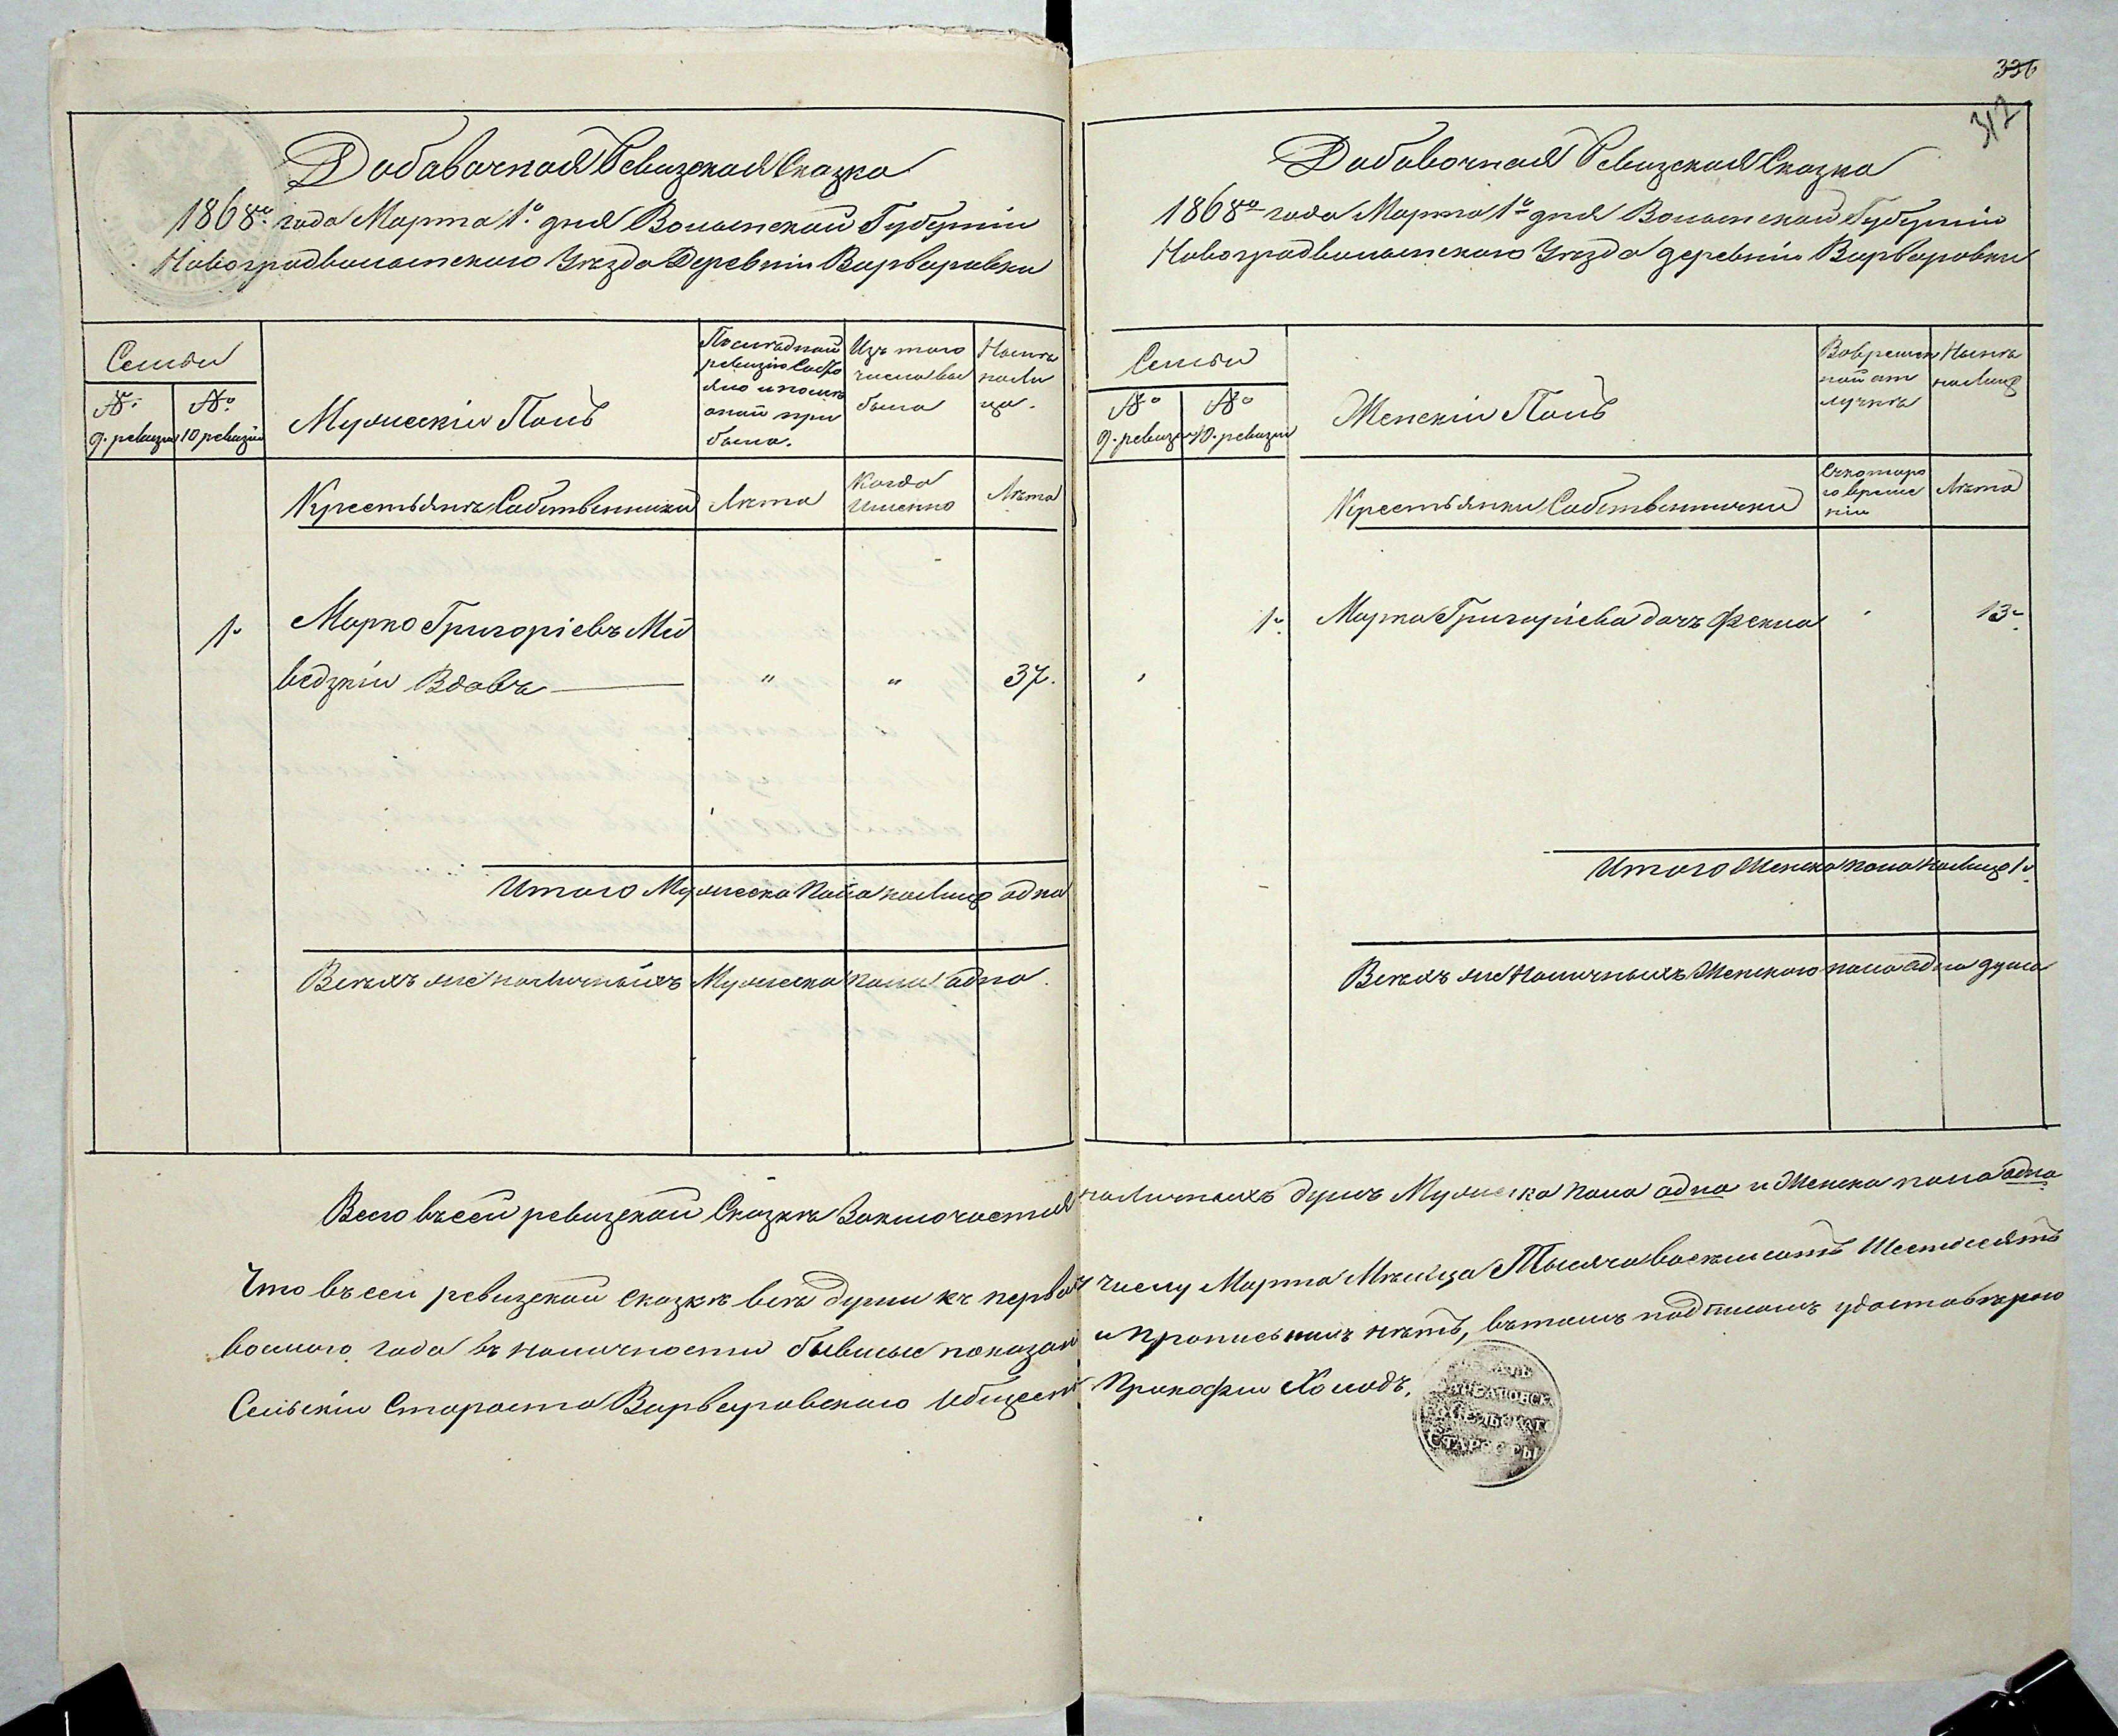 Добавочная Ревизская Сказка
1868го года Марта 1о дня Волынской Губернiи
Новоградволынского Уезда Деревнiи Варваровки
Семьи
№ 9. ревизiи
№ 10 ревизiи
Мужескiи Полъ
После̣дней ревизiю Состояло и после оной прибыло.
Изъ того числа выбыло
Ныне на Лицо.
Крестьянъ Собственники
Лета
Когда Именно
Лета
1. Марко Григорiевъ Мѣ
ведзкiи Вдовъ " " 37.
Итого Мужеска Пола на Лицо одна
Всехъ же наличныхъ Мужеска пола одна.
336
312
Добавочная Ревизская Сказка
1868го года Марта 1о дня Волынской Губернiи
Новоградволынского Уезда деревнiи Варваровки
Семьи
№ 9. ревизiи
№ 10. ревизiи
Женскiи Полъ
Вовременной отлучке
Ныне на Лицо
Крестьянки Собственнички
Скоторого времени
Лета
1. Марка Григорiева дочь Фекла 13.
Итого Женска пола на Лицо 1.
Всехъ же Наличныхъ Женского пола одна душа
Всего въсей ревизской Сказке Заключается наличныхъ душъ Мужеска пола одна и Женска пола одна
Что въсей ревизской сказке все души къ первому числу Марта Месяца Тысяча восемсотъ Шестдесятъ
восмого года въ наличности бывшые показаны и прописныхъ нетъ, вътомъ подписомъ удостоверяю
Сельскiи Староста Варваровского Общества Прокофiи Холодъ.
СТАРОСТЫ